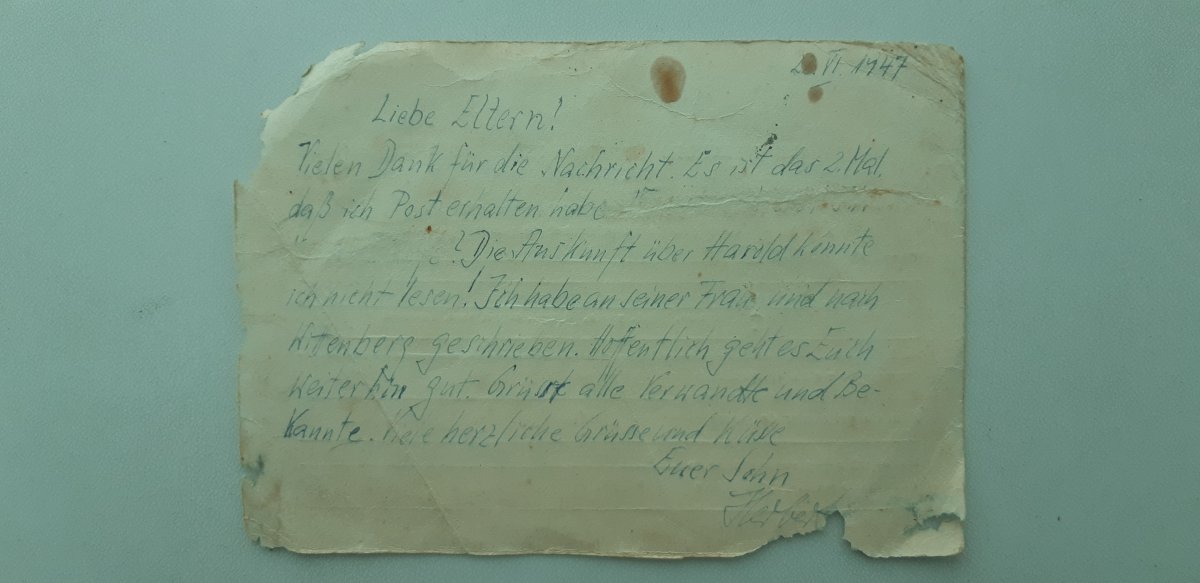 VI. 1947
Liebe Eltern!
Vielen Dank für die Nachricht. Es ist das 2. Mal,
daß ich Post erhalten habe
! Die Auskunft über Harold konnte
ich nicht lesen! Ich habe an seiner Frau und nach
Wittenberg geschrieben. Hoffentlich geht es Euch
weiterhin gut. Grüsst alle Verwandte und Be-
kannte. Viele herzliche Grüsse und Küsse
Euer Sohn
Herbert